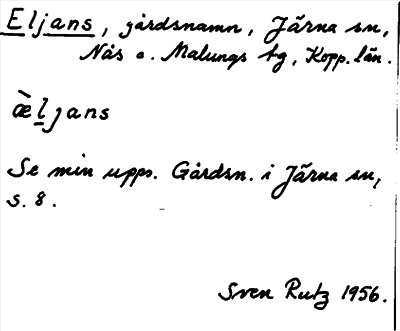 Eljans, gårdsnamn, Järna sn,
Nås o. Malungs tg, Kopp. län.
æ̀ljans
Se min upps. Gårdsn. i Järna sn,
s. 8.
Sven Rutz 1956.